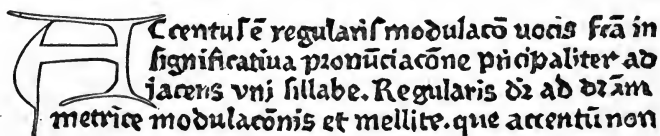 Accentus ē regularis modulacō uocis fcā in
significatiua pronūciacōne pncipaliter ad
iacens vnj sillabe. Regularis dr ad drām
metrice modulacōnis et mellite. que accentū non